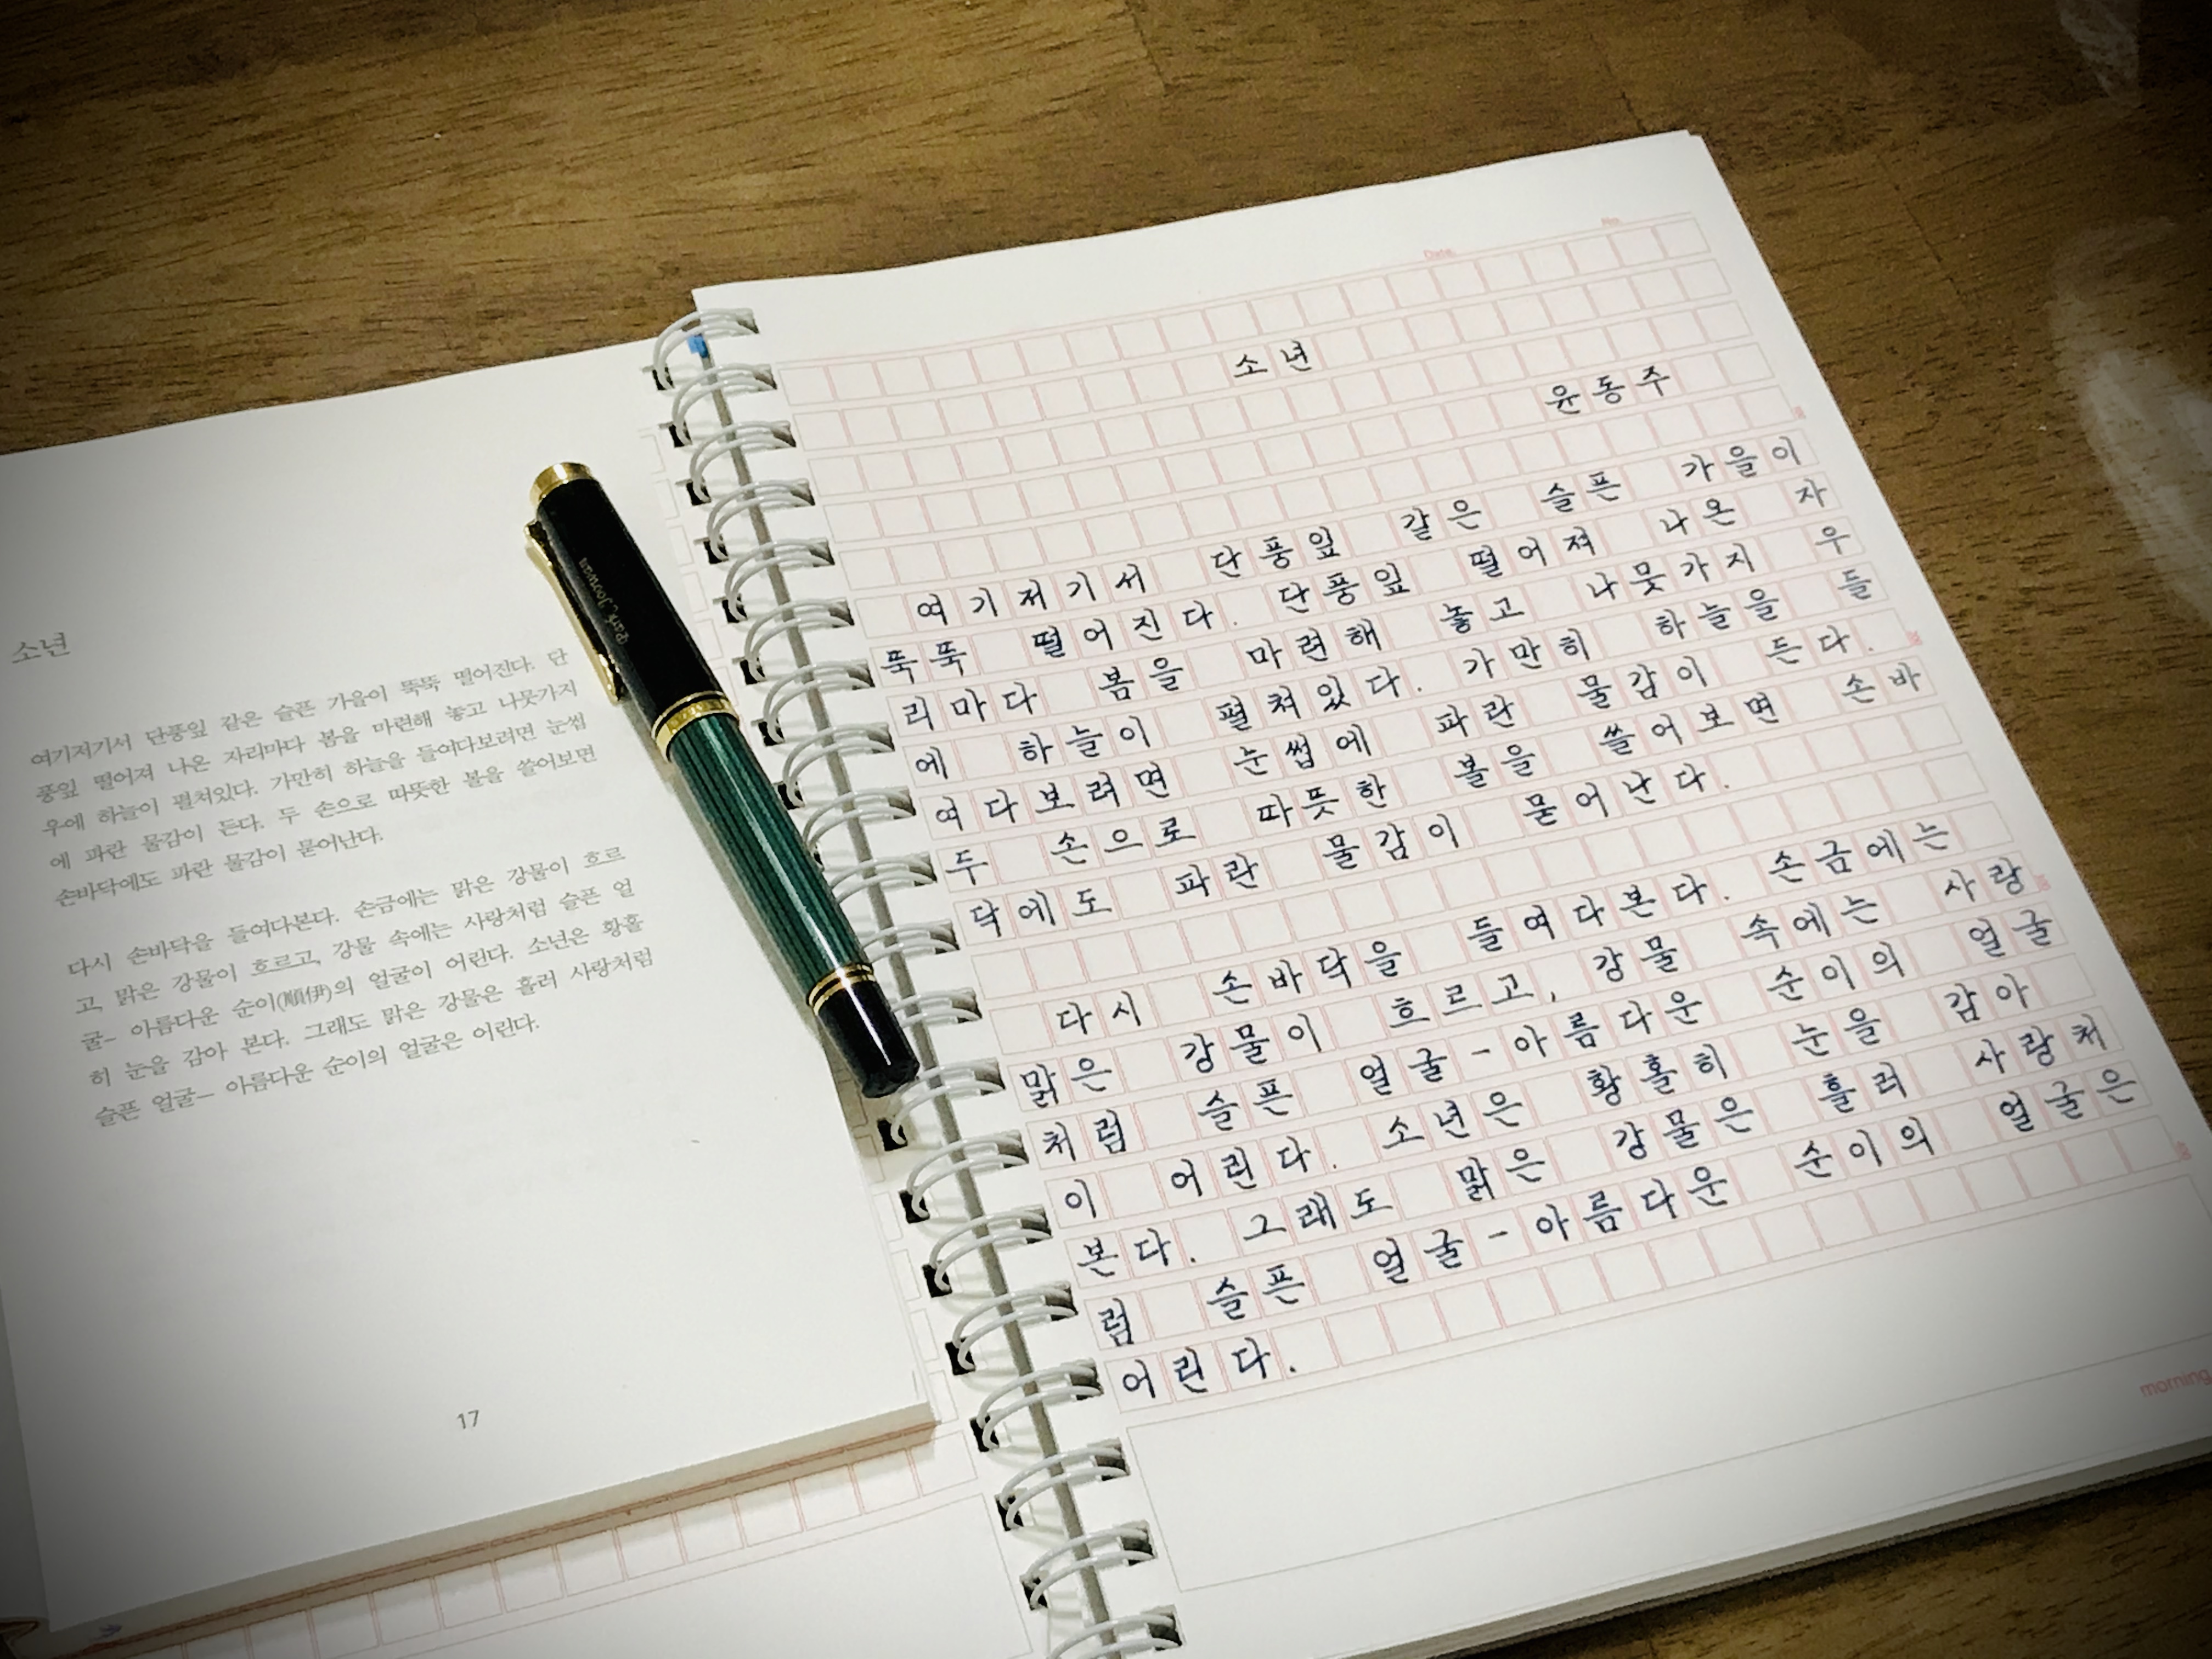 소년
여기저기서 단풍잎 같은 슬픈 가을이 뚝뚝 떨어진다. 단
풍잎 떨어져 나온 자리마다 봄을 마련해 놓고 나뭇가지
우에 하늘이 펼쳐있다. 가만히 하늘을 들여다보려면 눈썹
에 파란 물감이 든다. 두 손으로 따뜻한 볼을 쓸어보면
손바닥에도 파란 물감이 묻어난다.
다시 손바닥을 들여다본다. 손금에는 맑은 강물이 흐르
고, 맑은 강물이 흐르고, 강물 속에는 사랑처럼 슬픈 얼
굴— 아름다운 순이(順伊)의 얼굴이 어린다. 소년은 황홀
히 눈을 감아 본다. 그래도 맑은 강물은 흘러 사랑처럼
슬픈 얼굴— 아름다운 순이의 얼굴은 어린다.
17
Park, Jonwan
Date.
No.
소년
윤동주
여기저기서 단풍잎 같은 슬픈 가을이
뚝뚝 떨어진다. 단풍잎 떨어져 나온 자
리마다 봄을 마련해 놓고 나뭇가지 우
에 하늘이 펼쳐있다. 가만히 하늘을 들
여다보려면 눈썹에 파란 물감이 든다.
두 손으로 따뜻한 볼을 쓸어보면 손바
닥에도 파란 물감이 묻어난다.
다시 손바닥을 들여다본다. 손금에는
맑은 강물이 흐르고, 강물 속에는 사랑
처럼 슬픈 얼굴-아름다운 순이의 얼굴
이 어린다. 소년은 황홀히 눈을 감아
본다. 그래도 맑은 강물은 흘러 사랑처
럼 슬픈 얼굴-아름다운 순이의 얼굴은
어린다.
morning